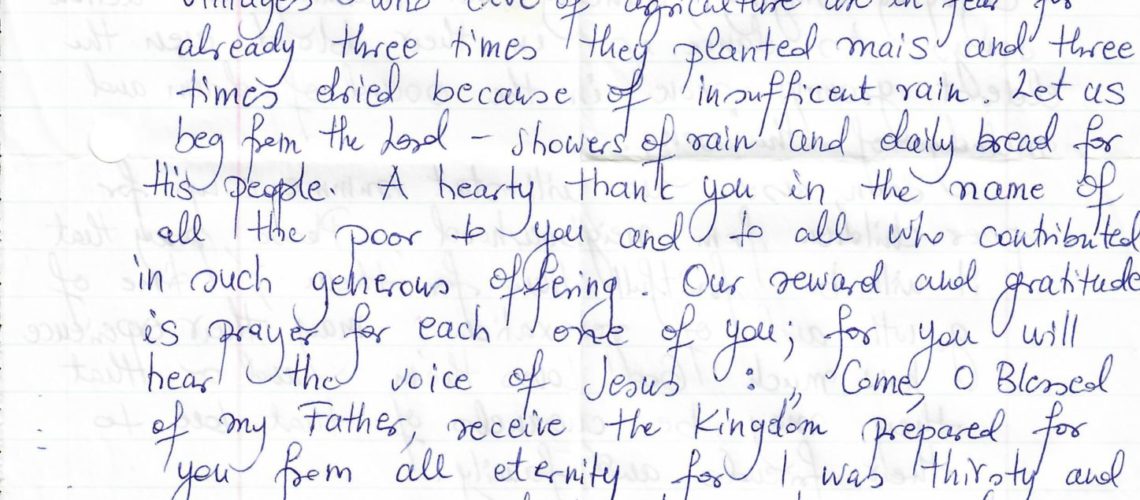 villages who live of agriculture are in fear for
already three times they planted mais and three
times dried because of insufficent rain. Let us
beg from the Lord – showers of rain and daily bread for
His people. A hearty thank you in the name of
all the poor to you and to all who contributed
in such generous offering. Our reward and gratitude
is prayer for each one of you; for you will
hear the voice of Jesus : „ Come, O Blessed
of my Father, receive the Kingdom prepared for
you from all eternity for I was thirsty and